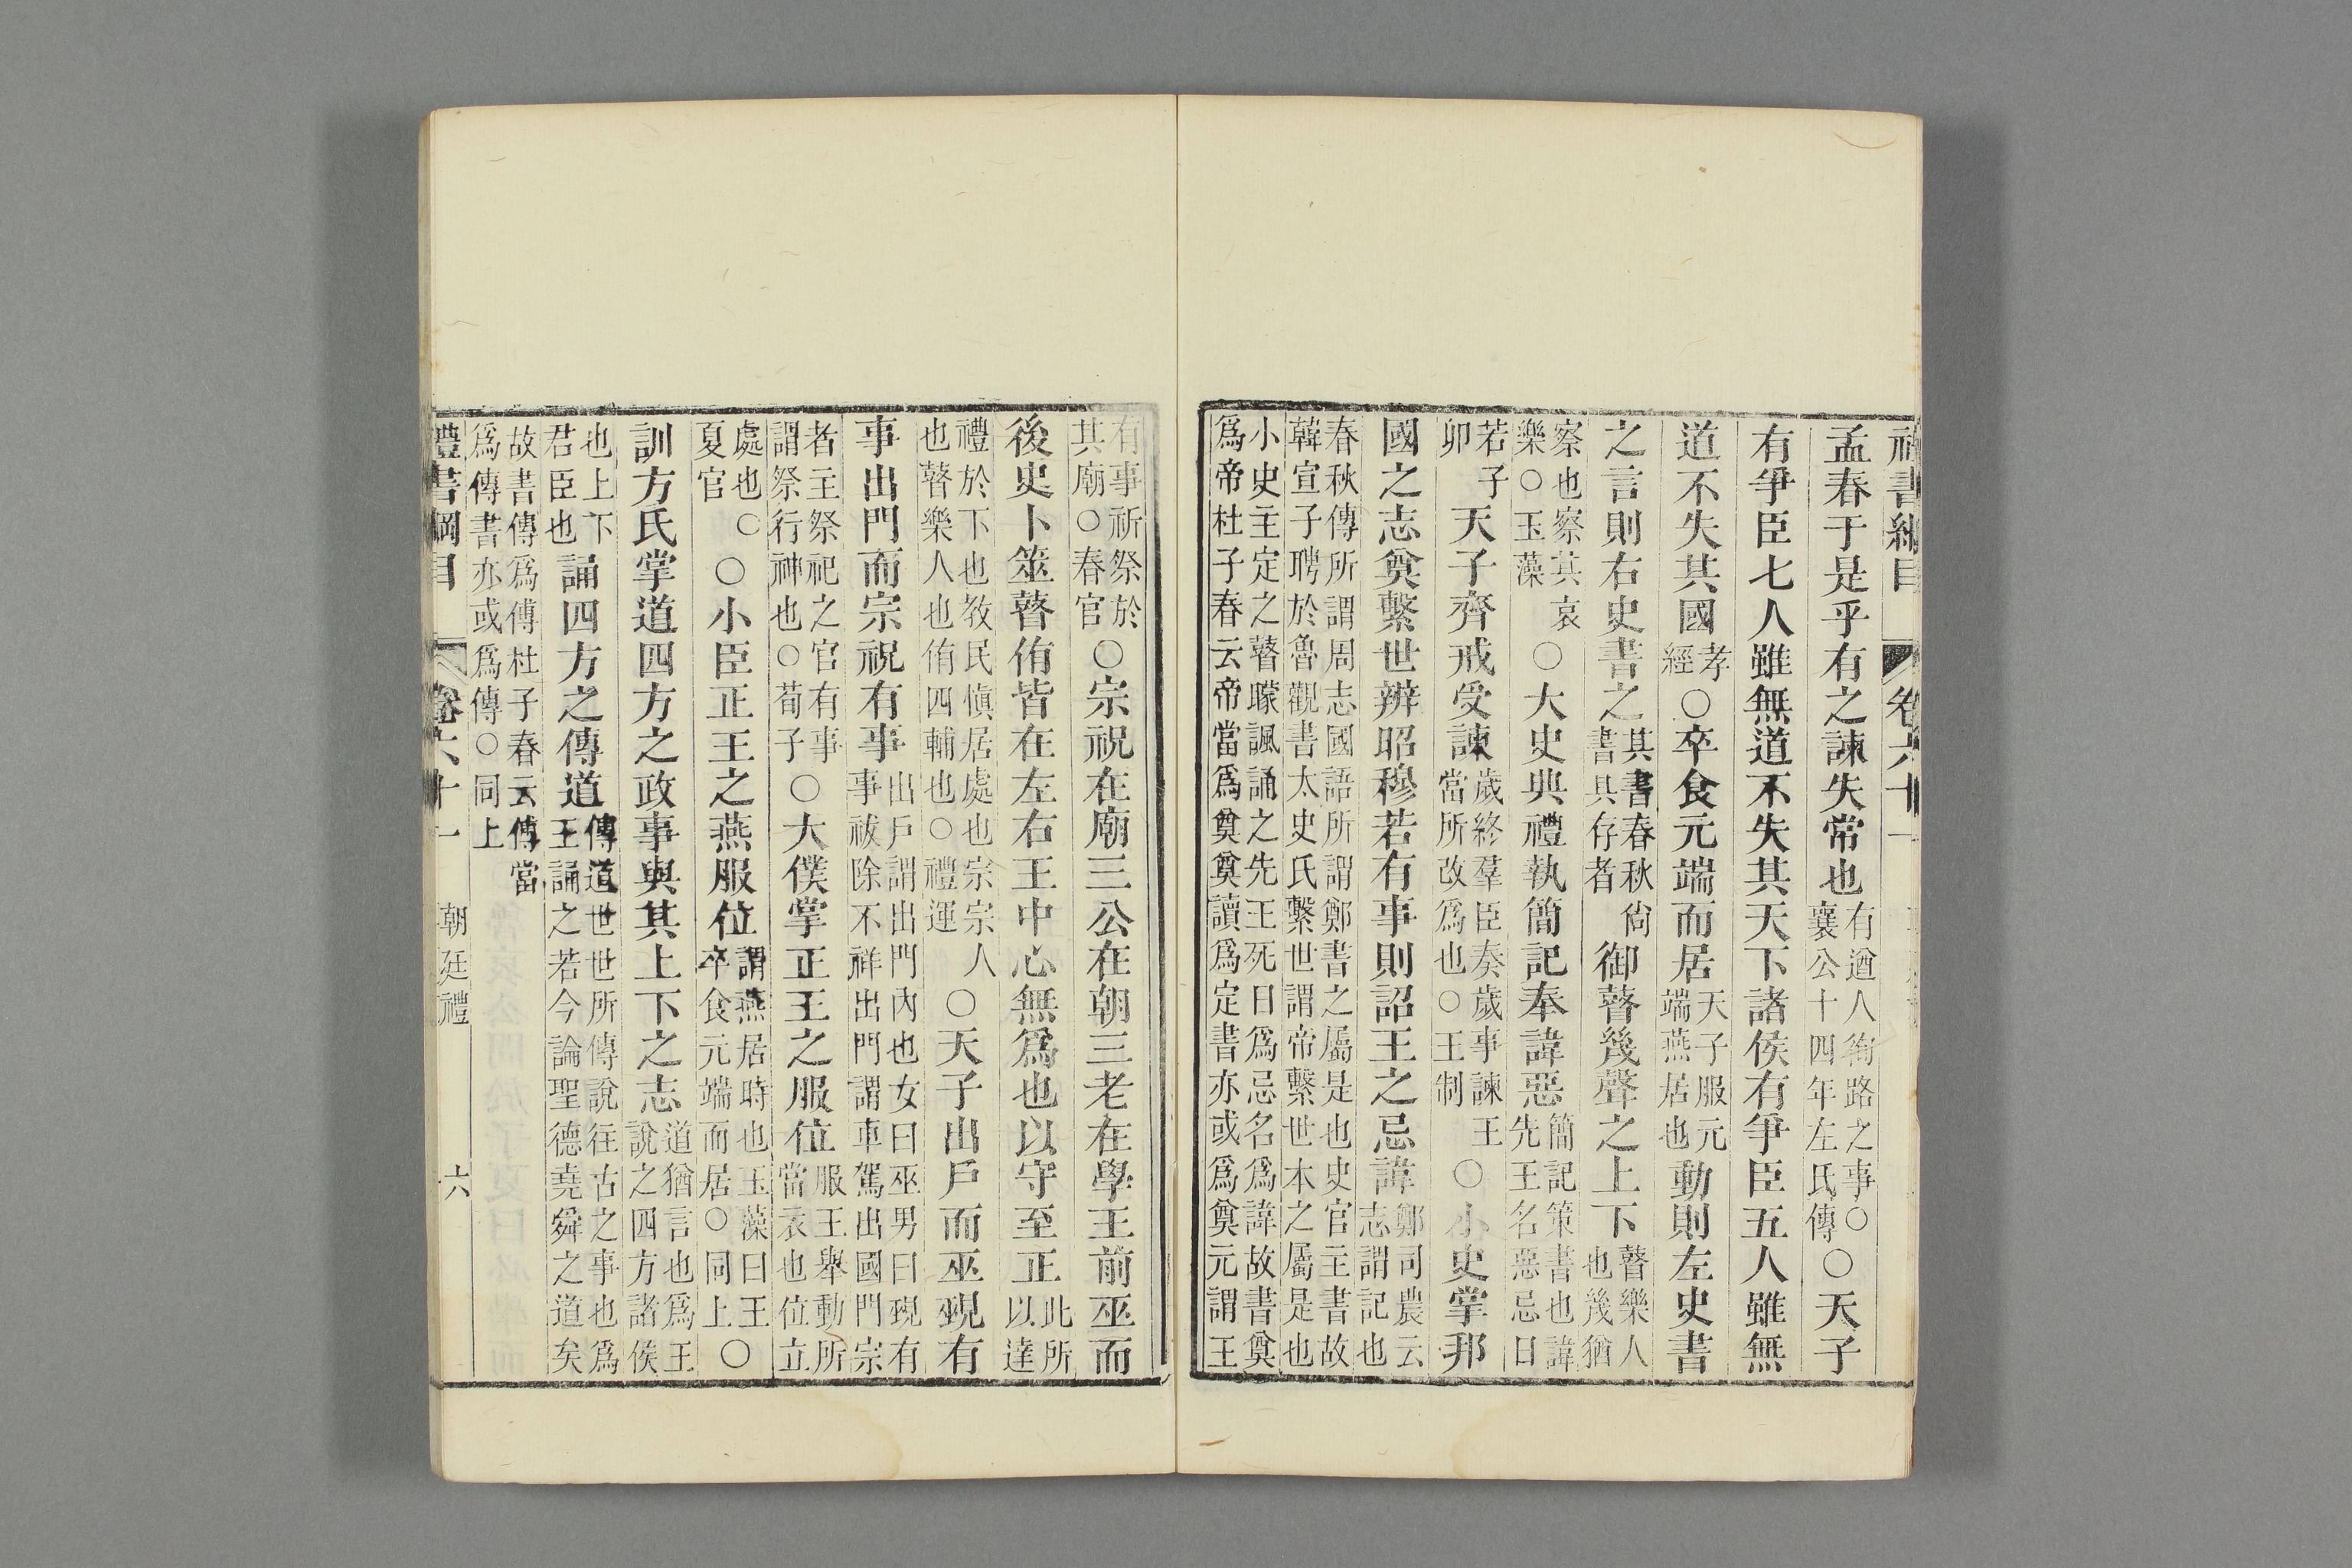 禮書綱目 卷六十一
孟春于是乎有之諫失常也有遒人徇路之事○襄公十四年左氏傳○天子
有爭臣七人雖無道不失其天下諸侯有爭臣五人雖無
道不失其國孝經○卒食元端而居天子服元端燕居也動則左史書
之言則右史書之其書春秋尚書其存者御瞽幾聲之上下瞽樂人也幾猶
察也察其哀樂○玉藻○大史典禮執簡記奉諱惡簡記策書也諱先王名惡忌日
若子卯天子齊戒受諫歲終羣臣奏歲事諫王當所改爲也○王制○小史掌邦
國之志奠繫世辨昭穆若有事則詔王之忌諱鄭司農云志謂記也
春秋傳所謂周志國語所謂鄭書之屬是也史官主書故
韓宣子聘於魯觀書太史氏繫世謂帝繫世本之屬是也
小史主定之瞽矇諷誦之先王死日爲忌名爲諱故書奠
爲帝杜子春云帝當爲奠奠讀爲定書亦或爲奠元謂王
有事祈祭於其廟○春官○宗祝在廟三公在朝三老在學王前巫而
後史卜筮瞽侑皆在左右王中心無爲也以守至正此所以達
禮於下也教民愼居處也宗宗人也瞽樂人也侑四輔也○禮運○天子出戶而巫覡有
事出門而宗祝有事出戶謂出門內也女曰巫男曰覡有事祓除不祥出門謂車駕出國門宗
者主祭祀之官有事謂祭行神也○荀子○大僕掌正王之服位服王舉動所當衣也位立
處也○夏官○小臣正王之燕服位謂燕居時也玉藻曰王卒食元端而居○同上○
訓方氏掌道四方之政事與其上下之志道猶言也爲王說之四方諸侯
也上下君臣也誦四方之傳道傳道世世所傳說往古之事也爲王誦之若今論聖德堯舜之道矣
故書傳爲傅杜子春云傅當爲傳書亦或爲傳○同上
禮書綱目 卷六十一 朝廷禮 六